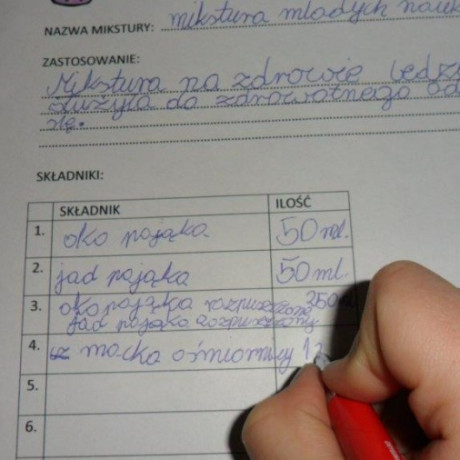 NAZWA MIKSTURY: mikstura młodych nauk
ZASTOSOWANIE:
Mikstura na zdrowie będz
służyła do zdrowotnego od
się.
SKŁADNIKI:
SKŁADNIK ILOŚĆ
1. oko pająka 50 ml.
2. jad pająka 50 ml.
3. oko pająka rozpuszczone 350
jad pająka rozpuszczony
4. macka ośmiornicy 1
5.
6.